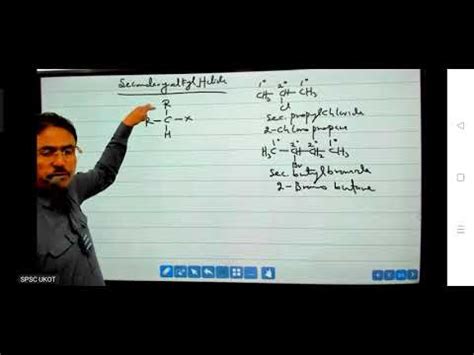 Secondary alkyl Halide
R
R-C-X
H
1° 2° 1°
CH3-CH-CH3
Cl
sec. propylchloride
2-chloropropane
1° 2° 2° 1°
H3C-CH-CH2-CH3
Br
sec. butylbromide
2-Bromo butane
SPSC UKOT